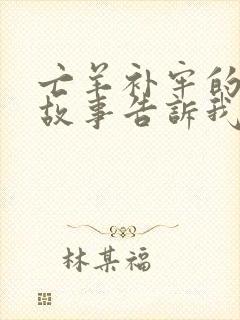 亡羊补牢的
故事告訴我
林某福